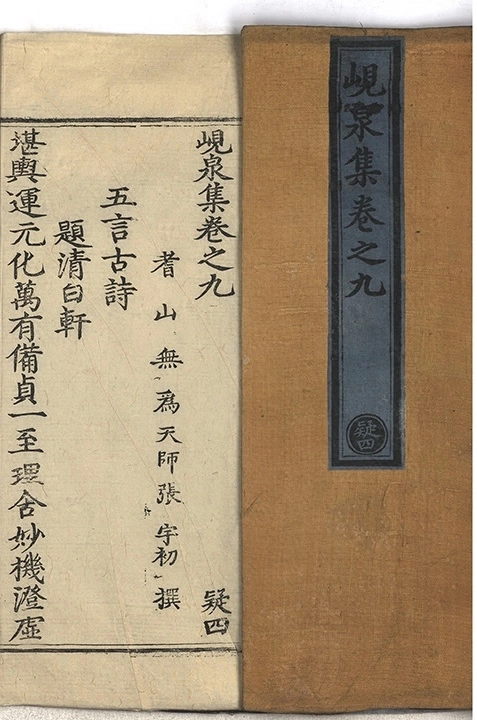 峴泉集卷之九
疑四
峴泉集卷之九 疑四
耆山無爲天師張宇初撰
五言古詩
題清白軒
堪輿運元化萬有備貞一至理含妙機澄虛